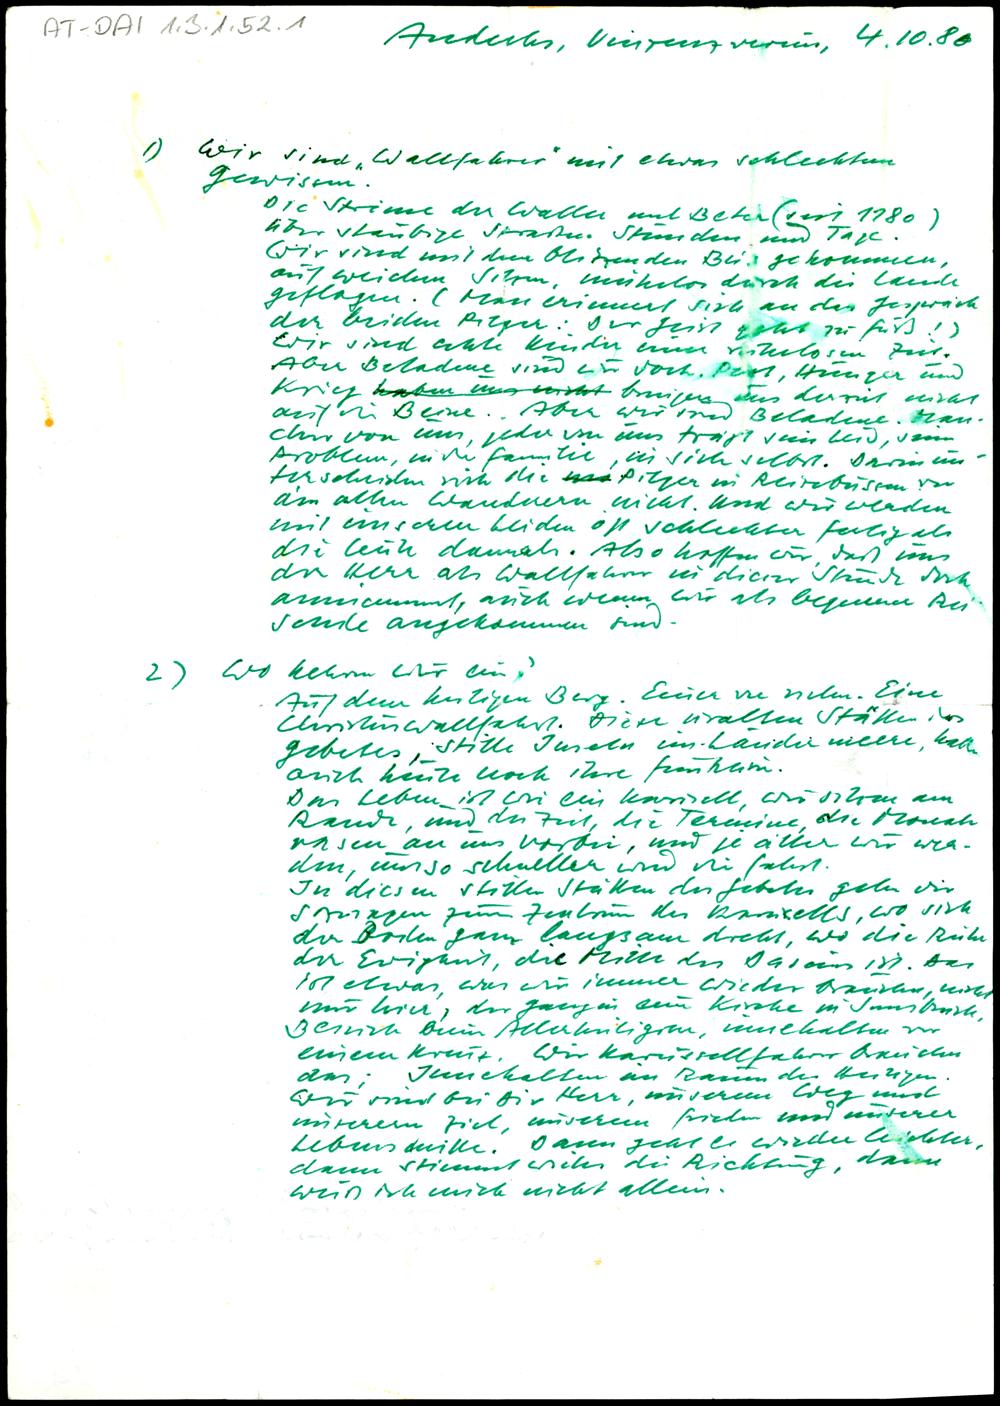 AT-DAI 1.3.1.52.1
Andechs, Vinzenzverein, 4.10.80
1) Wir sind „Wallfahrer" mit etwas schlechtem
Gewissen.
Die Ströme der Waller und Beter (seit 1180)
über staubige Straßen. Stunden und Tage.
Wir sind mit dem blitzenden Bus gekommen,
auf weichen Sitzen, mühelos durch die Lande
geflogen. (Man erinnert sich an das Gespräch
der beiden Pilger: Der Geist geht zu Fuß!)
Wir sind echte Kinder einer ruhelosen Zeit.
Aber Beladene sind wir doch. Pest, Hunger und
Krieg haben uns nicht bringen uns derzeit nicht
auf die Beine. Aber wir sind Beladene. Man-
cher von uns, jeder von uns trägt sein Leid, sein
Problem, in der Familie, in sich selbst. Darin un-
terscheiden sich die Pilger in Reisebussen von
den alten Wanderern nicht. Und wir werden
mit unseren Leiden oft schlechter fertig als
die Leute damals. Also hoffen wir, daß uns
der Herr als Wallfahrer in dieser Stunde doch
annimmt, auch wenn wir als bequeme Rei-
sende angekommen sind.
2) Wo kehren wir ein?
Auf dem heiligen Berg. Einer von vielen. Eine
Christuswallfahrt. Diese uralten Stätten des
Gebetes, stille Inseln im Ländermeere, haben
auch heute noch ihre Funktion.
Das Leben ist wie ein Karusell, wir sitzen am
Rande, und die Zeit, die Termine, die Monate
rasen an uns vorbei, und je älter wir wer-
den, umso schneller wird die Fahrt.
In diesen stillen Stätten des Gebetes gehen wir
sozusagen zum Zentrum des Karusells, wo sich
der Boden ganz langsam dreht, wo die Ruhe
der Ewigkeit, die Mitte des Daseins ist. Das
ist etwas, was wir immer wieder brauchen, nicht
nur hier, der Gang in eine Kirche in Innsbruck,
Besuch beim Allerheiligsten, innehalten vor
einem Kreuz. Wir Karussellfahrer brauchen
das: Innehalten im Raum des Heiligen.
Wir sind bei Dir Herr, unserem Weg und
unserem Ziel, unserem Frieden und unserer
Lebensmitte. Dann geht es wieder leichter,
dann stimmt wieder die Richtung, dann
weiß ich mich nicht allein.